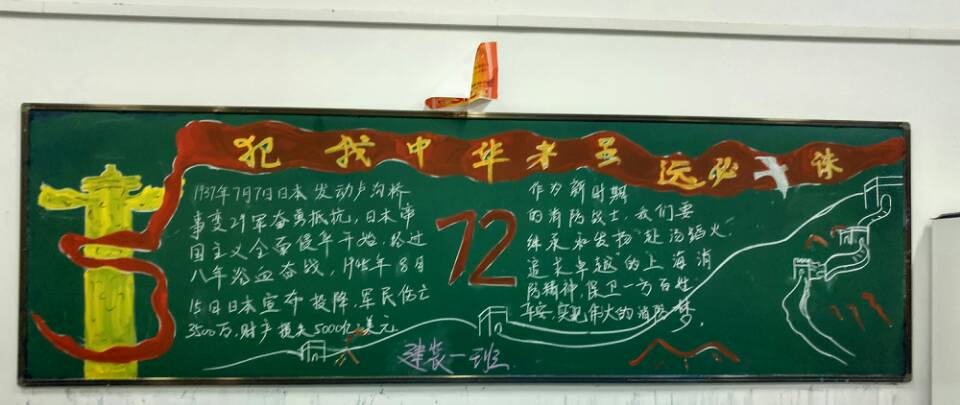 犯我中华者虽远必诛
1937年7月7日日本发动卢沟桥
事变29军奋勇抵抗,日本帝
国主义全面侵华开始,经过
八年浴血奋战,1945年8月
15日日本宣布投降,军民伤亡
3500万,财产损失5000亿美元
72
作为新时期
的消防战士,我们要
继承和发扬"赴汤蹈火,
追求卓越"的上海消
防精神,保卫一方百姓
平安实现伟大的消防梦。
建装一班